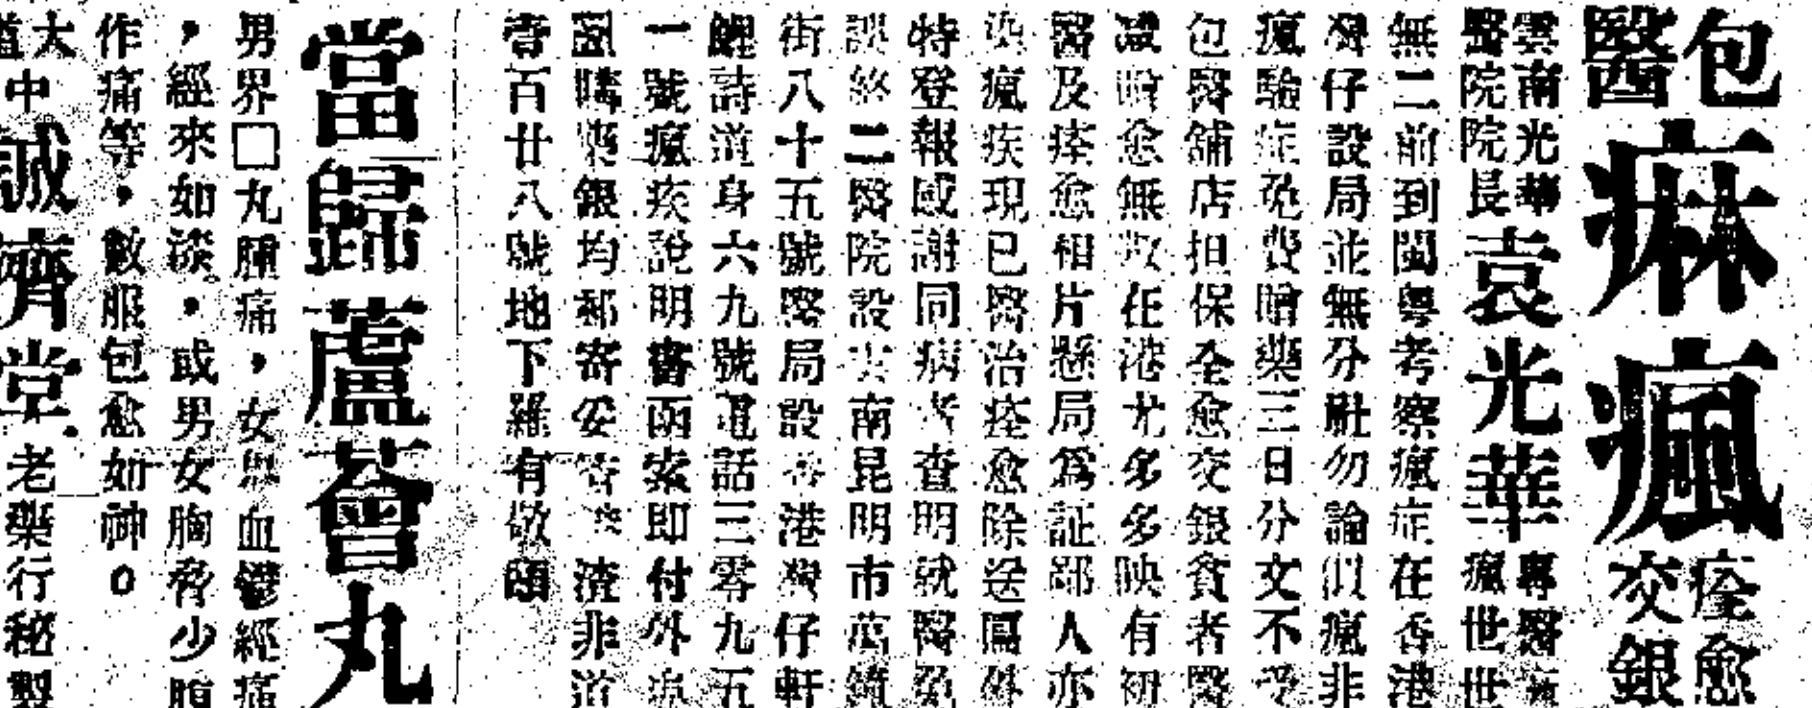 包醫
痳瘋
痊愈
交銀
雲南光華
醫院院長
袁光華
專醫
瘋世世
無二前到閩粵考察瘋症在香港
灣仔設局並無分社勿論似瘋非
瘋驗症免費贈藥三日分文不受
包醫舖店担保全愈交銀貧者醫
減贈愈無取在港尤多多映有初
醫及痊愈相片懸局為証鄙人亦
染瘋疾現已醫治痊愈除送匾外
特登報感謝同病者查明就醫免
誤終二醫院設雲南昆明市
街八十五號醫局設香港灣仔軒
鯉詩道身六九號電話三零九五
一號瘋疾說明書函索即付外
匯銀均郵寄妥答 渣非道
壹百廿八號地下羅有敬頤
當歸蘆薈丸
男界□丸腫痛，女 血鬱經痛
，經來如淡。，或男女胸脅少腹
作痛等，數服包愈如神。
大道中誠濟堂老藥行秘製